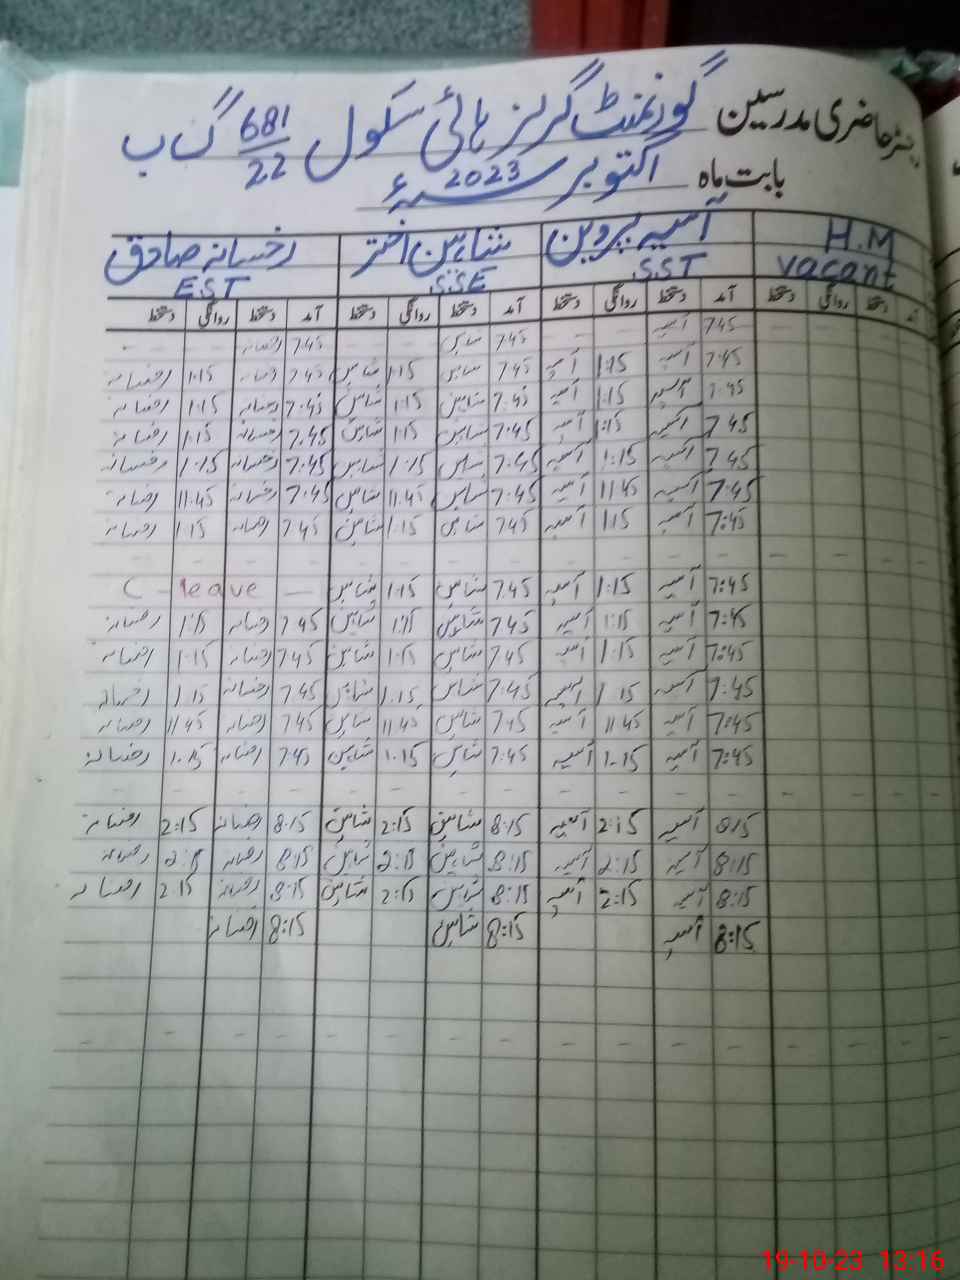 رجسٹر حاضری مدرسین گورنمنٹ گرلز ہائی سکول 681/22 گ ب
بابت ماہ اکتوبر سنہ 2023ء
H.M آسیہ پروین شاہین اختر رخسانہ صادق
vacant S.S.T S.S.E E.S.T
آمد دستخط روانگی دستخط آمد دستخط روانگی دستخط آمد دستخط روانگی دستخط آمد دستخط روانگی دستخط
7:45 آسیہ - - 7:45 شاہین - - 7:45 رخسانہ - -
7:45 آسیہ 1:15 آسیہ 7:45 شاہین 1:15 شاہین 7:45 رخسانہ 1:15 رخسانہ
7:45 آسیہ 1:15 آسیہ 7:45 شاہین 1:15 شاہین 7:45 رخسانہ 1:15 رخسانہ
7:45 آسیہ 1:15 آسیہ 7:45 شاہین 1:15 شاہین 7:45 رخسانہ 1:15 رخسانہ
7:45 آسیہ 1:15 آسیہ 7:45 شاہین 1:15 شاہین 7:45 رخسانہ 1:15 رخسانہ
7:45 آسیہ 11:45 آسیہ 7:45 شاہین 11:45 شاہین 7:45 رخسانہ 11:45 رخسانہ
7:45 آسیہ 1:15 آسیہ 7:45 شاہین 1:15 شاہین 7:45 رخسانہ 1:15 رخسانہ
- - - - - - - - - - - - - - - -
7:45 آسیہ 1:15 آسیہ 7:45 شاہین 1:15 شاہین — C - leave
7:45 آسیہ 1:15 آسیہ 7:45 شاہین 1:15 شاہین 7:45 رخسانہ 1:15 رخسانہ
7:45 آسیہ 1:15 آسیہ 7:45 شاہین 1:15 شاہین 7:45 رخسانہ 1:15 رخسانہ
7:45 آسیہ 1:15 آسیہ 7:45 شاہین 1:15 شاہین 7:45 رخسانہ 1:15 رخسانہ
7:45 آسیہ 11:45 آسیہ 7:45 شاہین 11:45 شاہین 7:45 رخسانہ 11:45 رخسانہ
7:45 آسیہ 1:15 آسیہ 7:45 شاہین 1:15 شاہین 7:45 رخسانہ 1:15 رخسانہ
- - - - - - - - - - - - - - - -
8:15 آسیہ 2:15 آسیہ 8:15 شاہین 2:15 شاہین 8:15 رخسانہ 2:15 رخسانہ
8:15 آسیہ 2:15 آسیہ 8:15 شاہین 2:15 شاہین 8:15 رخسانہ 2:15 رخسانہ
8:15 آسیہ 2:15 آسیہ 8:15 شاہین 2:15 شاہین 8:15 رخسانہ 2:15 رخسانہ
8:15 آسیہ 8:15 شاہین 8:15 رخسانہ
- - - - - - - - - - - - - - - -
19-10-23 13:16